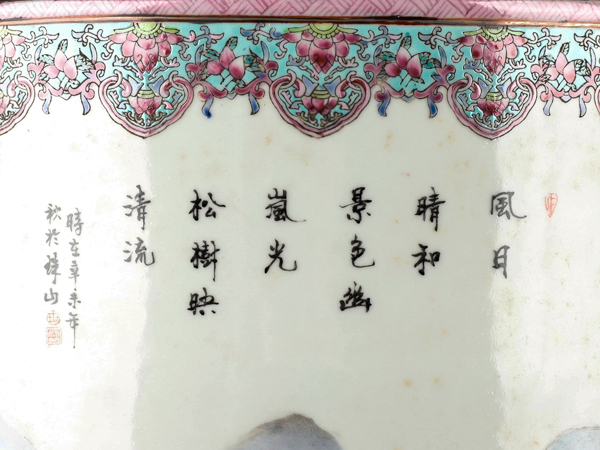 風日
晴和
景色幽
嵐光
松樹映
清流
時在辛未年
秋於珠山